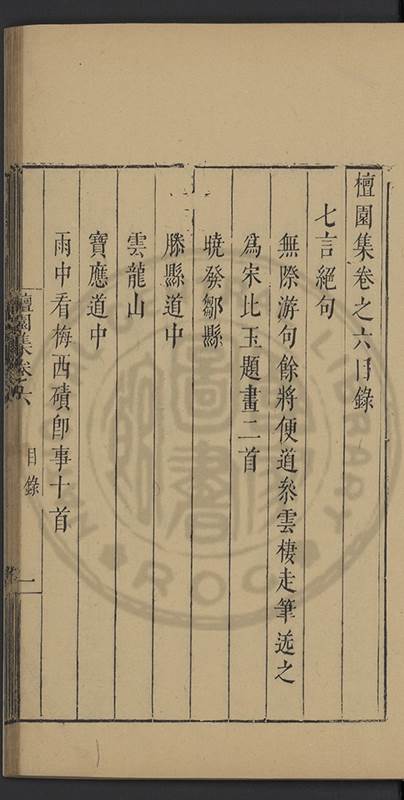 檀園集卷之六目錄
七言絕句
無際游句餘將便道參雲棲走筆送之
為宋比玉題畫二首
曉發鄒縣
滕縣道中
雲龍山
寶應道中
雨中看梅西磧即事十首
檀園集卷之六
目錄
一